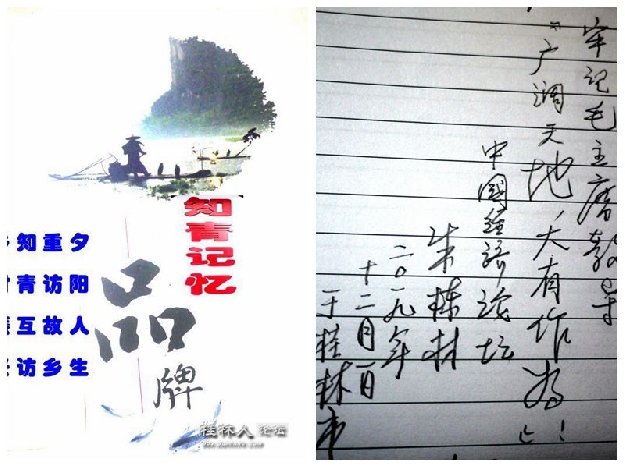 知青记忆
品牌
夕阳人生
重访故乡
知青互访
桂林人 论坛
牢记毛主席教导
“广阔天地，大有作为”！
中国经济论坛
朱栋材
二〇一九年
十二月一日
于桂林市